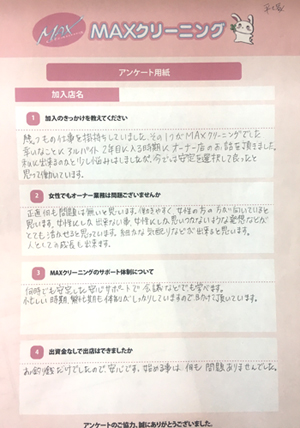 MAX
MAXクリーニング
アンケート用紙
加入店名
1 加入のきっかけを教えてください
幾つもの仕事を掛持ちしていました。その1つがMAXクリーニングでした
幸いなことにアルバイト2年目に入る時期に、オーナー店のお話を頂きました。
私に出来るのかと少し悩みはしましたが、今では安定を選択して良かったと
思って働いています。
2 女性でもオーナー業務は問題ございませんか
正直何も問題は無いと思います。働きやすく、女性の方の方が向いていると
思います。女性にしか出来ない事、女性にしか思いつかないような発想などが
とても活かせると思っています。細かな気配りなどが出来ると思います。
人としての成長も出来ます。
3 MAXクリーニングのサポート体制について
何時でも安定した安心サポートで会議などでも学べます。
忙しい時期、繁忙期も体制がしっかりしていますので助けて頂いています。
4 出資金なしで出店はできましたか
お釣り銭だけでしたので、安心です。始める事は、何も問題ありませんでした。
アンケートのご協力、誠にありがとうございました。